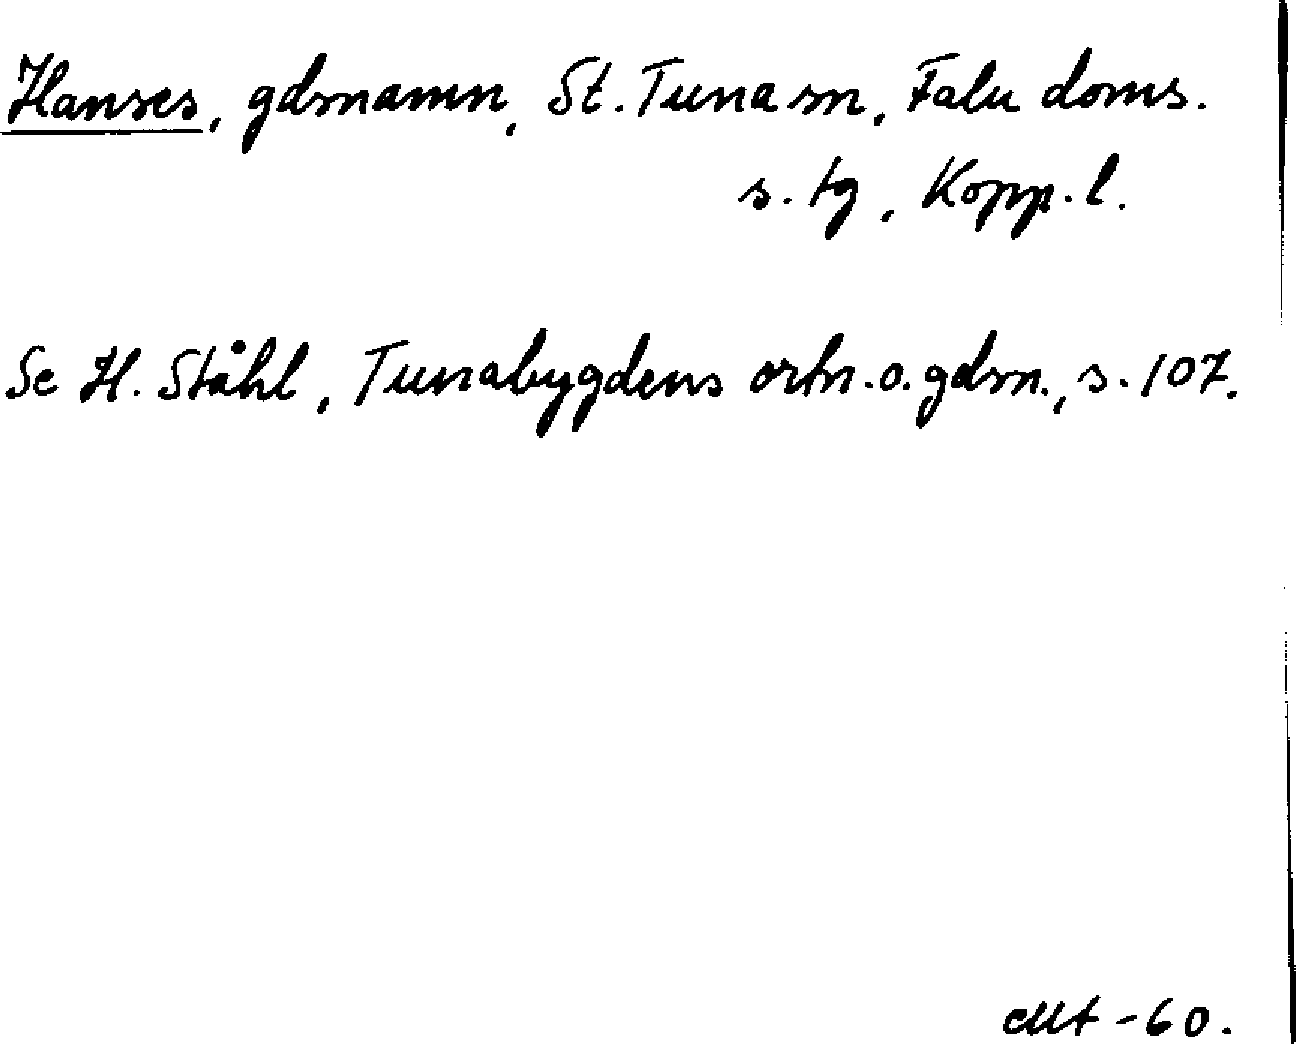 Hanses, gdsnamn, St. Tuna sn, Falu doms.
s. tg, Kopp. l.
Se H. Ståhl, Tunabygdens ortn. o. gdsn., s. 107.
-60.